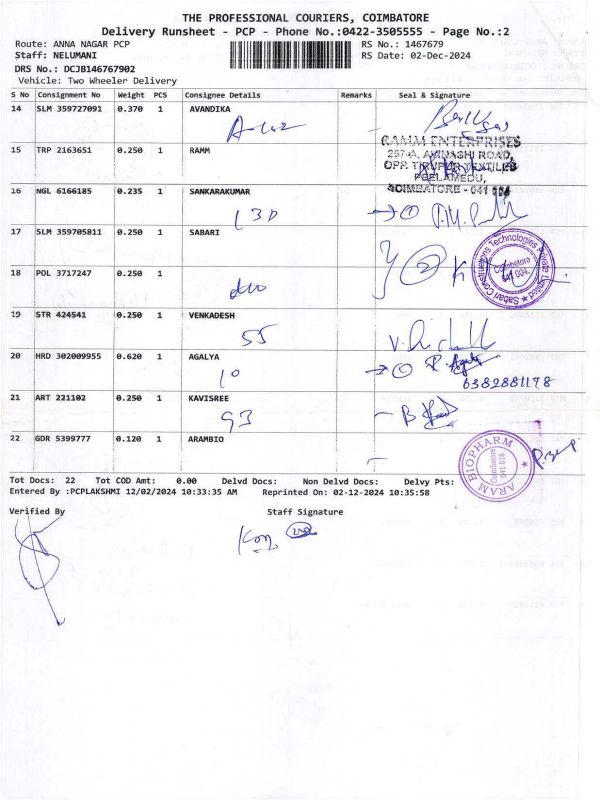 THE PROFESSIONAL COURIERS, COIMBATORE
Delivery Runsheet - PCP - Phone No.:0422-3505555 - Page No.:2
Route: ANNA NAGAR PCP
RS No.: 1467679
Staff: NELUMANI
RS Date: 02-Dec-2024
DRS No.: DCJB146767902
Vehicle: Two Wheeler Delivery
S No Consignment No Weight PCS Consignee Details Remarks Seal & Signature
14 SLM 359727091 0.370 1 AVANDIKA
15 TRP 2163651 0.250 1 RAMM
RAMM ENTERPRISES
297-A, AVINASHI ROAD,
OPP. TIRUPUR TEXTILES
PEELAMEDU,
COIMBATORE - 641 004
16 NGL 6166185 0.235 1 SANKARAKUMAR
130
17 SLM 359705811 0.250 1 SABARI
2
Sabari Constructions Technologies Private Limited
Coimbatore
641 004.
18 POL 3717247 0.250 1
19 STR 424541 0.250 1 VENKADESH
55
20 HRD 302009955 0.620 1 AGALYA
10
6382881178
21 ART 221102 0.250 1 KAVISREE
93
22 GDR 5399777 0.120 1 ARAMBIO
ARAM BIOPHARM
Coimbatore
641 018
Tot Docs: 22 Tot COD Amt: 0.00 Delvd Docs: Non Delvd Docs: Delvy Pts:
Entered By :PCPLAKSHMI 12/02/2024 10:33:35 AM Reprinted On: 02-12-2024 10:35:58
Verified By Staff Signature